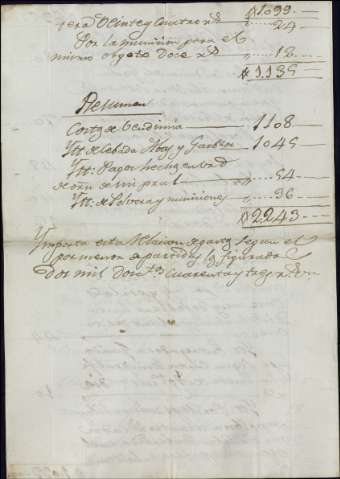 1099
Veinte y Cuatro rs 24
Por la municion para el
mismo objeto Doce rs 12
1135
Resumen
Corta de Vendimia 1108
Ytt. de Cebada Aloy y Garbon 1045
Ytt. Pagos hechos en
de orn de mi pral 54
Ytt. de Polvora y municiones 36
2243
Ymporta esta Relacion de gastos segun el
por menor de partidas figurado
Dos mil Docts cuarenta y tres rs vn